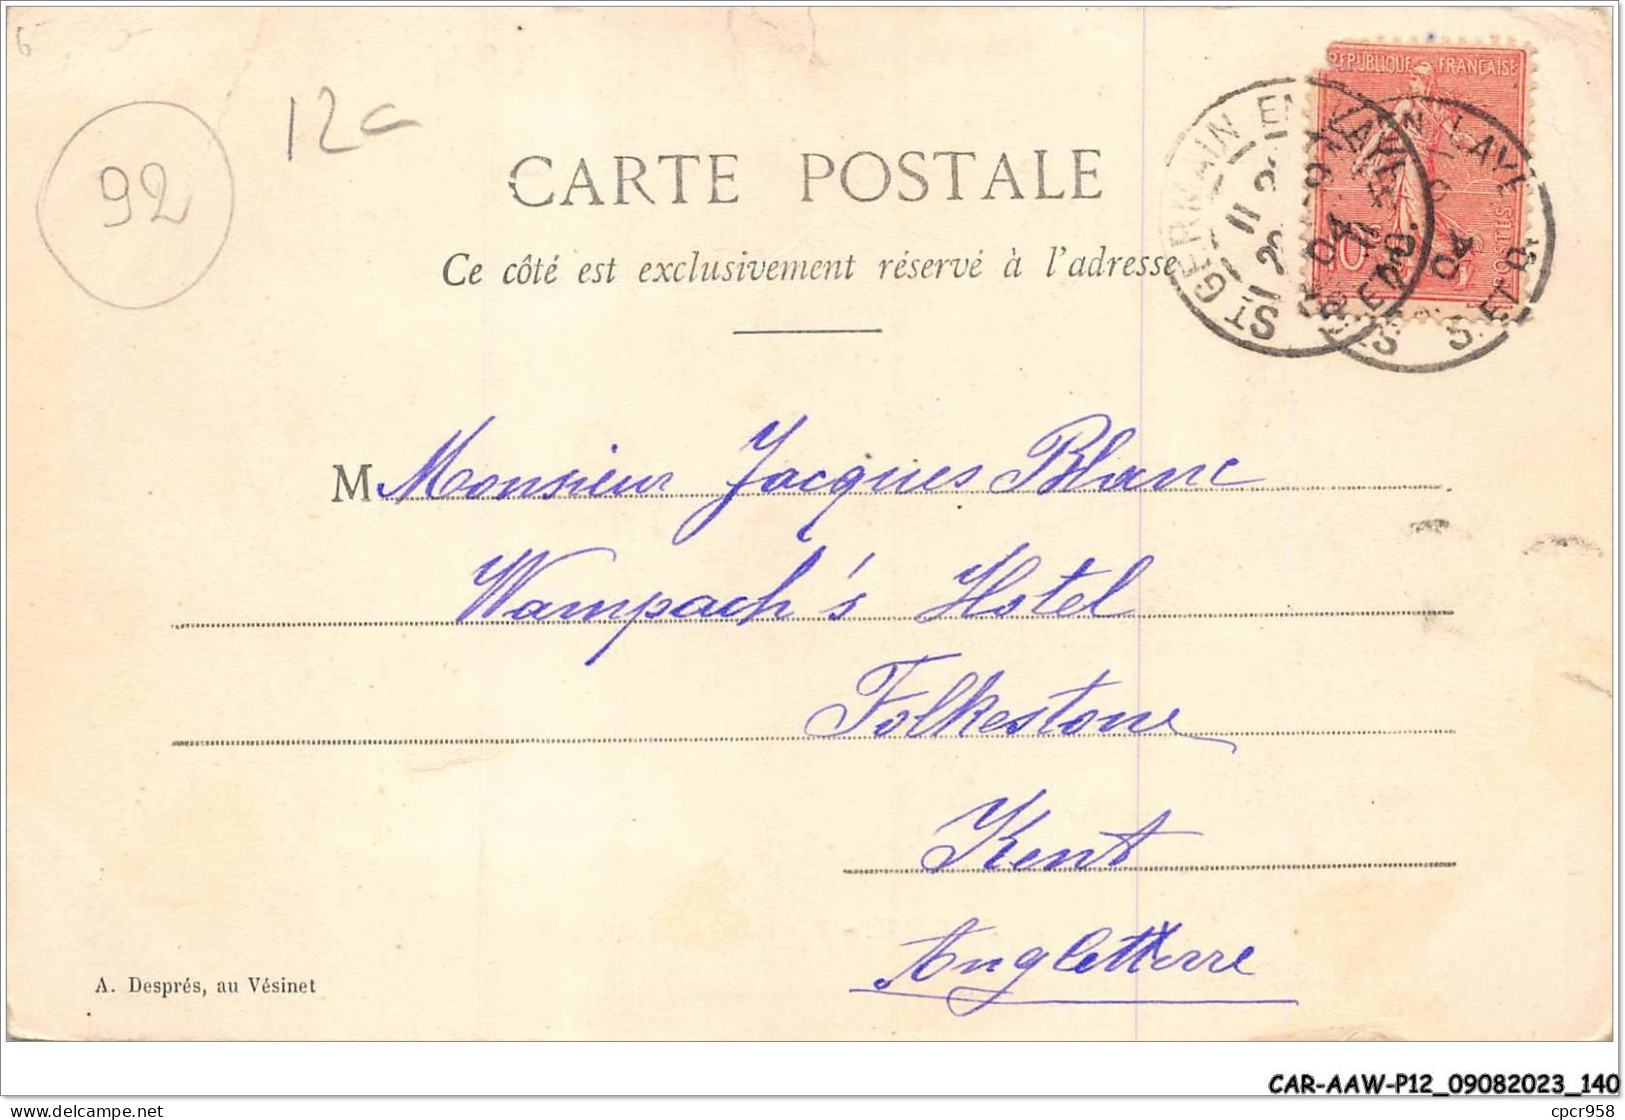 92
12c
RÉPUBLIQUE FRANÇAISE
10
POSTES
ST GERMAIN EN LAYE
S. ET O.
CARTE POSTALE
Ce côté est exclusivement réservé à l'adresse
M Monsieur Jacques Blanc
Wampach's Hotel
Folkestone
Kent
Angleterre
A. Després, au Vésinet
CAR-AAW-P12_09082023_140
delcampe.net
cpcr958